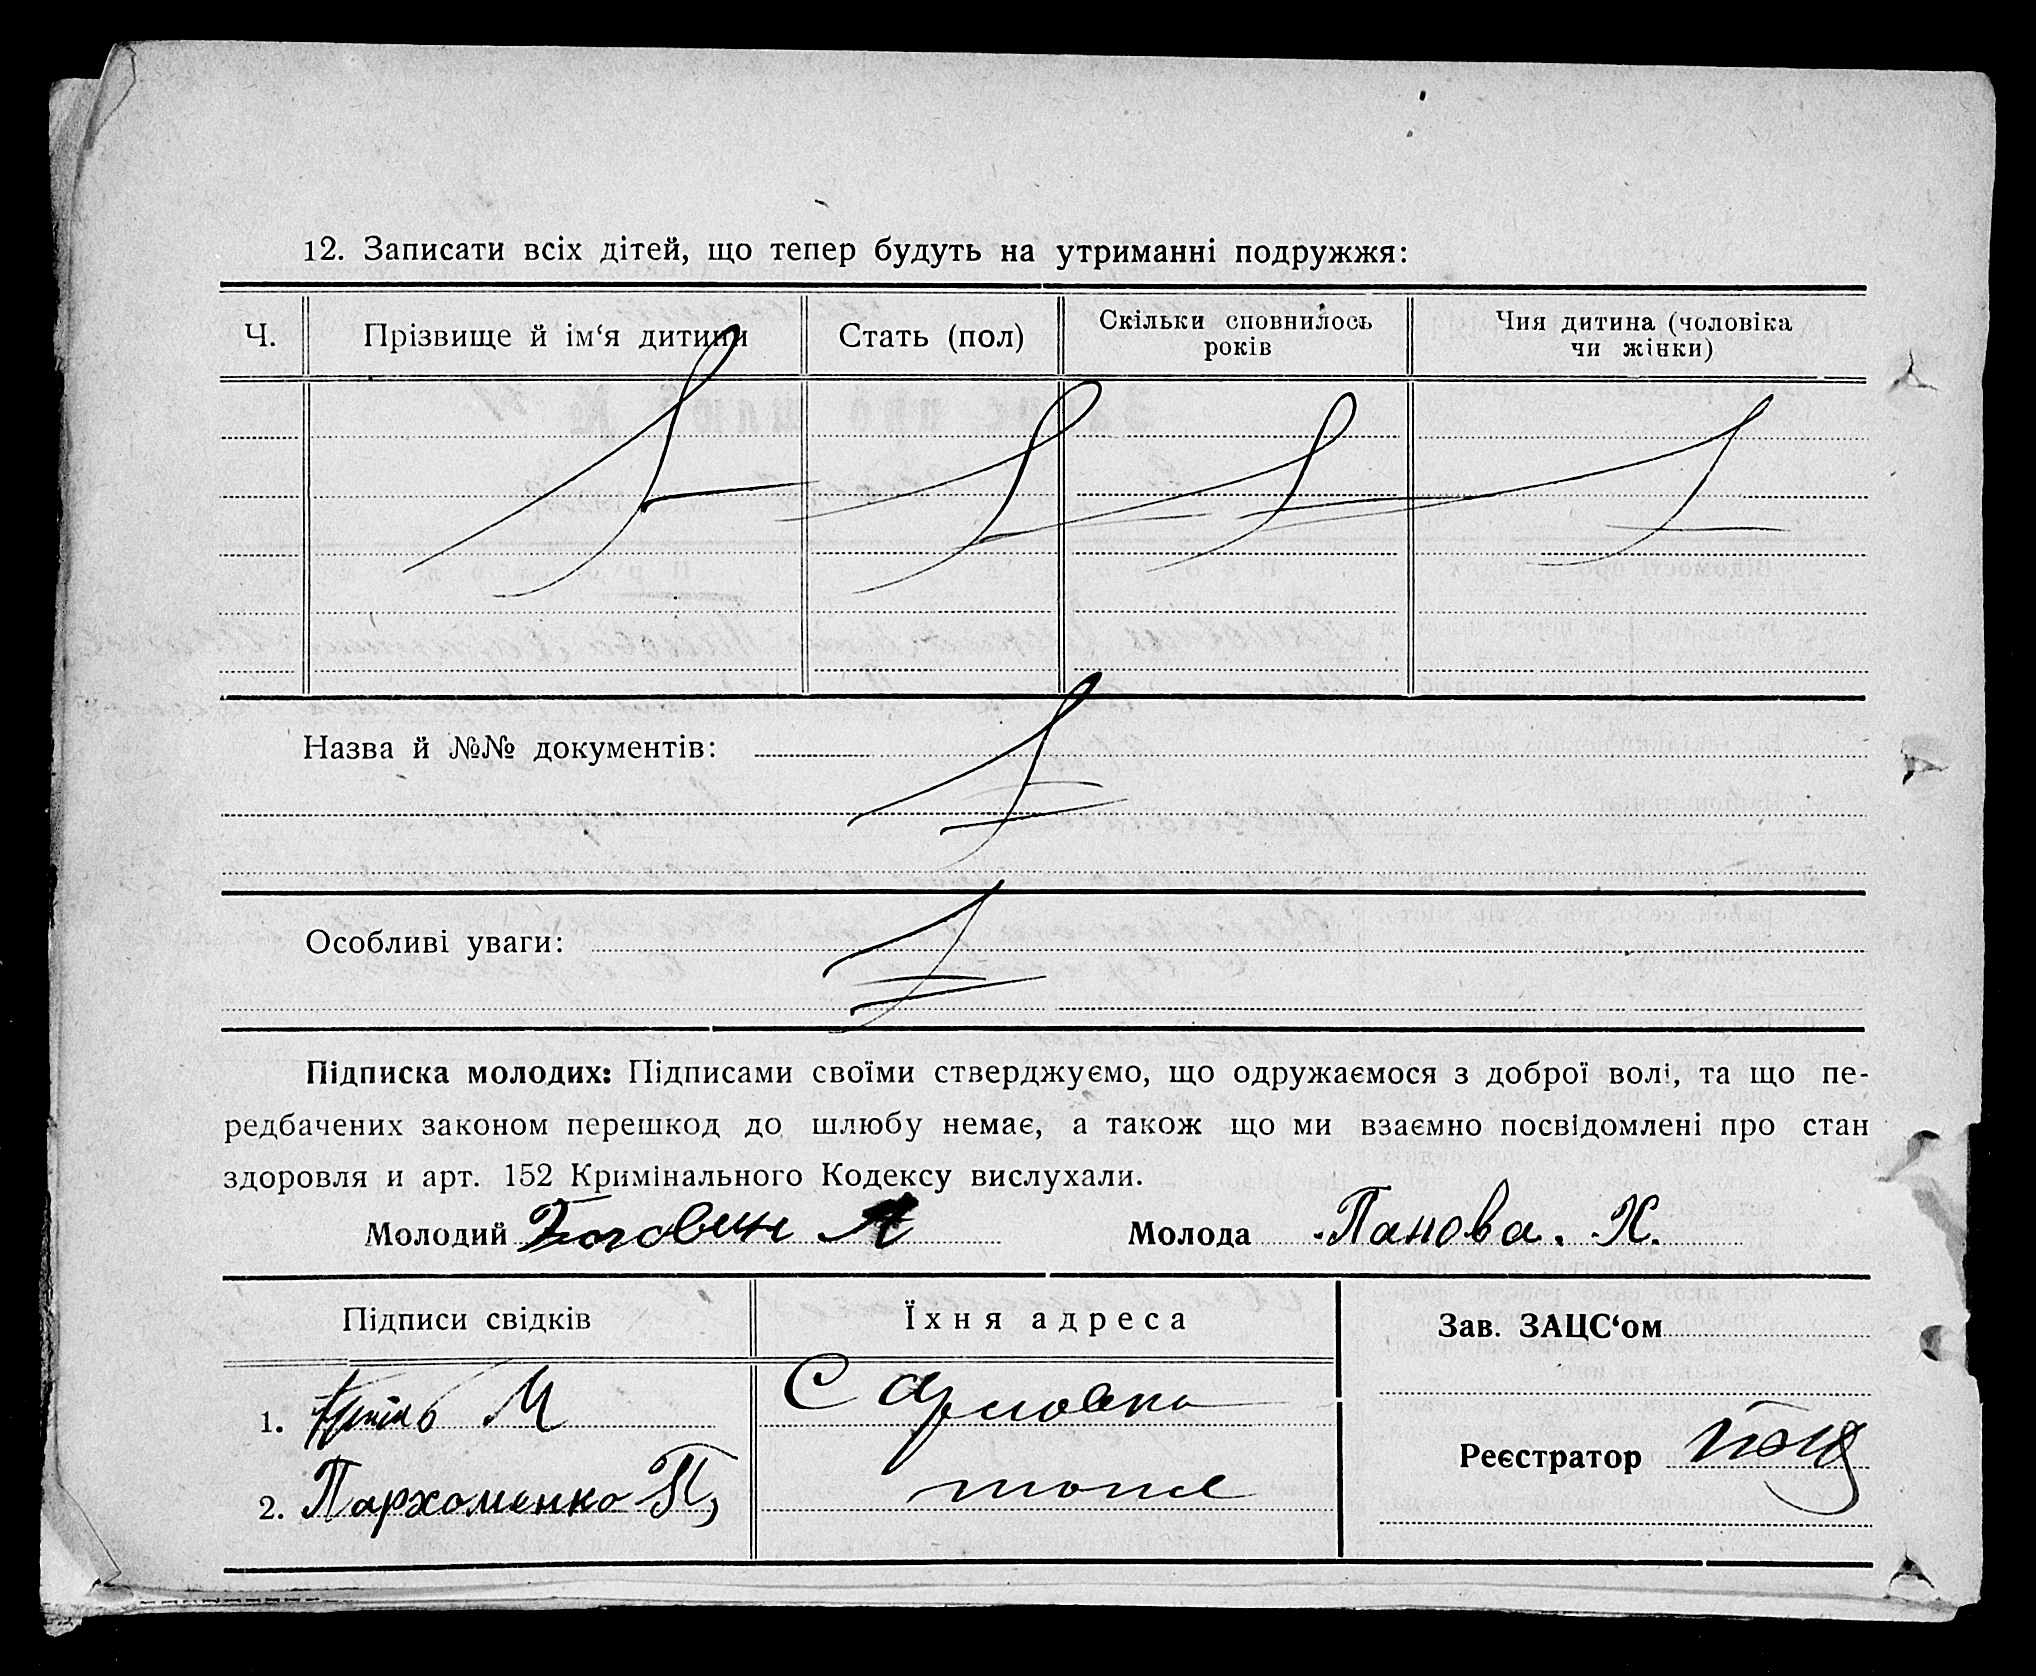 12. Записати всіх дітей, що тепер будуть на утриманні подружжя:
Ч.
Прізвище й ім‘я дитини
Стать (пол)
Скільки сповнилось
років
Чия дитина (чоловіка
чи жінки)
Назва й №№ документів:
Особливі уваги:
Підписка молодих: Підписами своїми стверджуємо, що одружаємося з доброї волі, та що пе-
редбачених законом перешкод до шлюбу немає, а також що ми взаємно посвідомлені про стан
здоровля и арт. 152 Кримінального Кодексу вислухали.
Молодий А Молода Панова. Х.
Підписи свідків
Їхня адреса
Зав. ЗАЦС‘ом
1. М
Реєстратор
2. Пархоменко П,